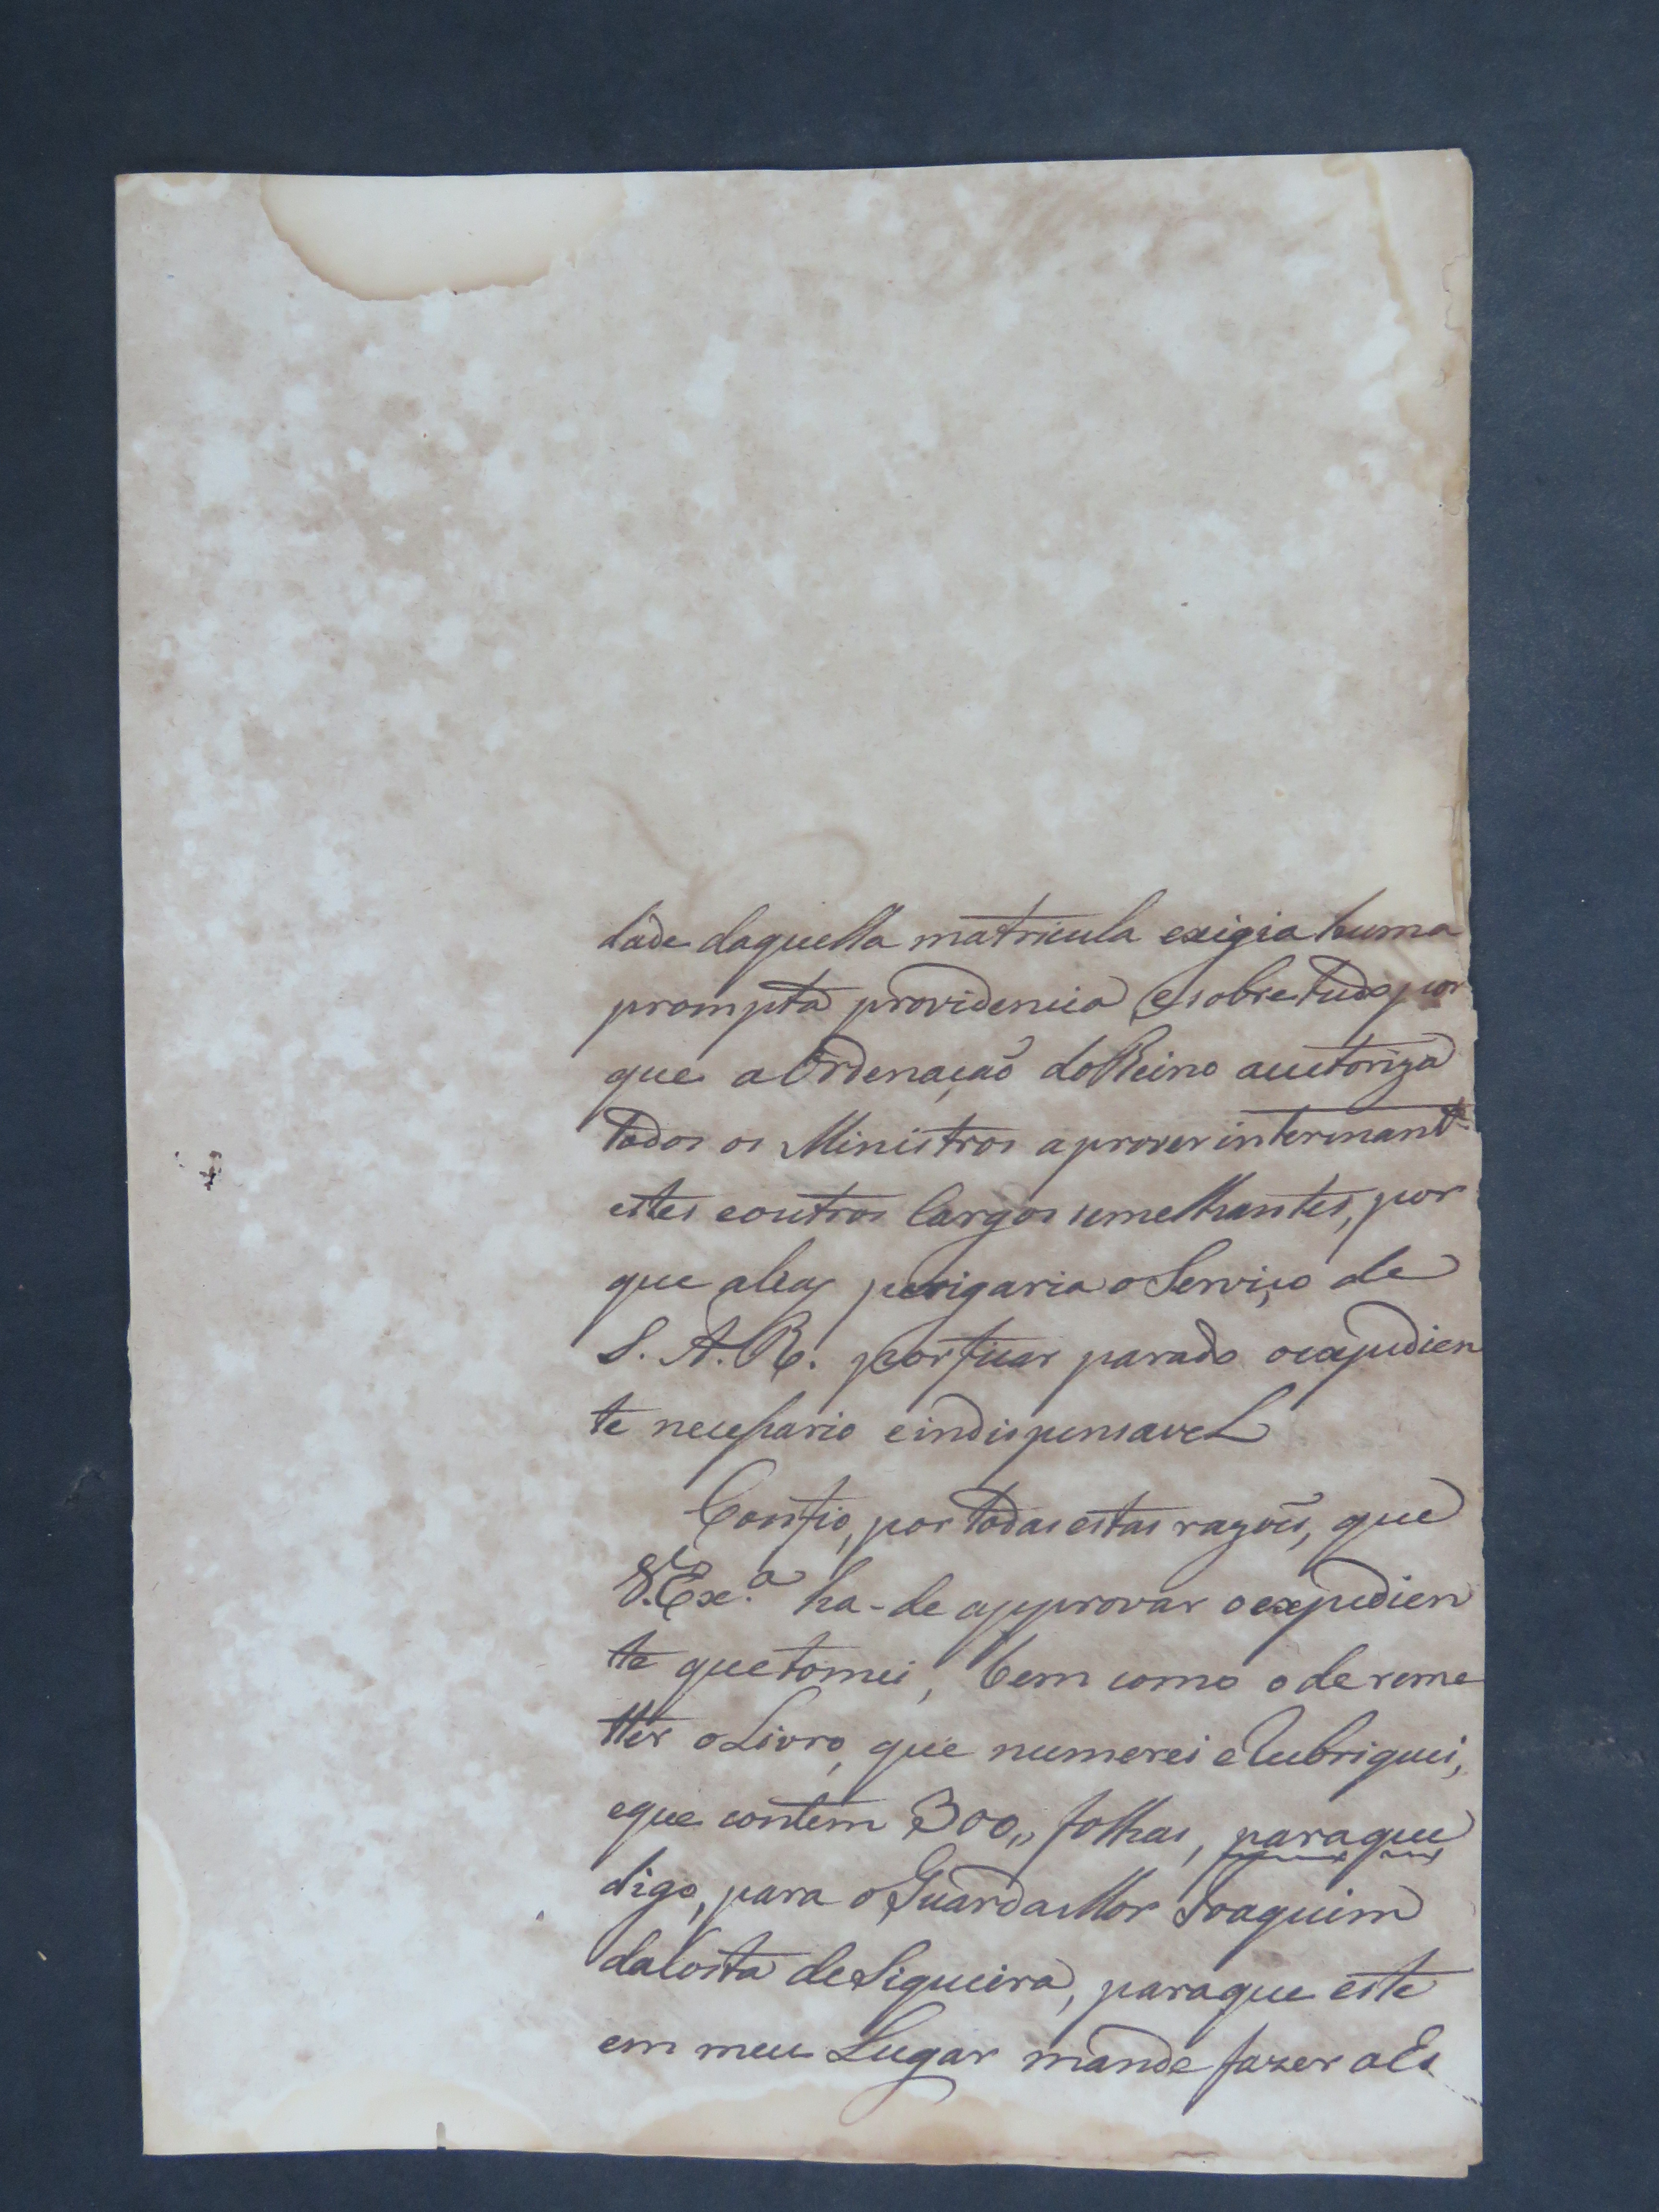 dade daquella matricula exigia huma
prompta providencia e sobretudo por
que a Ordenação do Reino auctoriza
todos os Ministros a prover interinamt.e
estes e outros Cargos semelhantes, por
que aliás perigaria o Serviço de
S. A. R. por ficar parado o expedien
te necessario e indispensavel
Confio, por todas estas razoẽs, que
V. Ex.ª ha-de approvar o expedien
te que tomei, bem como o de reme
tter o Livro, que numerei e Rubriquei,
e que contem 300,, folhas, para que
digo, para o Guarda Mor Joaquim
da Costa de Siqueira, para que este
em meu Lugar mande fazer a Es